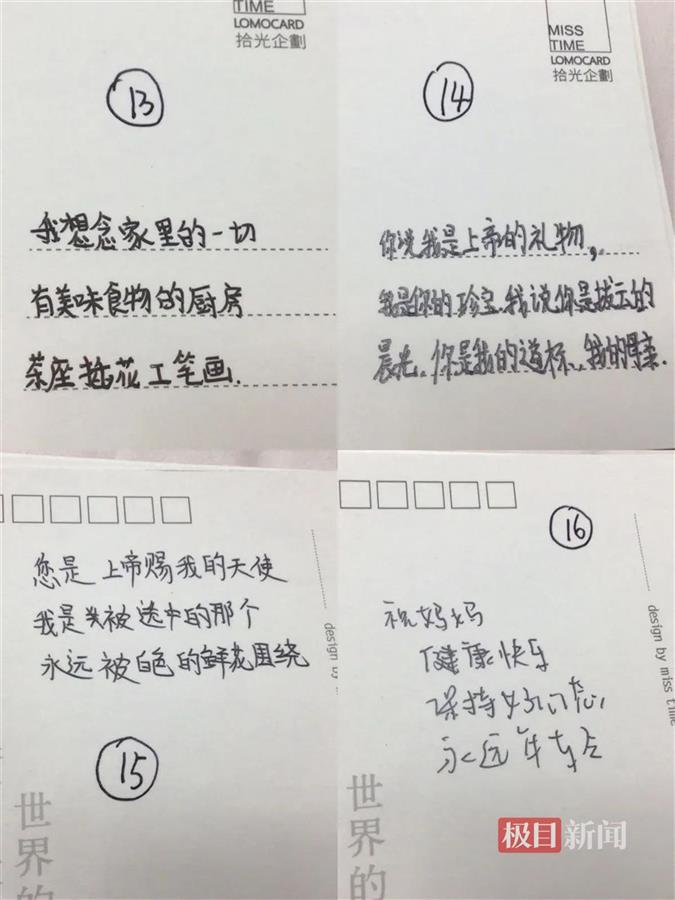 TIME
LOMOCARD
拾光企劃
13
我想念家里的一切
有美味食物的厨房
茶座插花工笔画.
MISS
TIME
LOMOCARD
拾光企劃
14
你说我是上帝的礼物,
我是你的珍宝.我说你是拨云的
晨光,你是我的道标.我的母亲.
您是上帝赐我的天使
我是被选中的那个
永远被白色的鲜花围绕
15
世界的
16
祝妈妈
健康快乐
保持好心态
永远年轻
design by miss time
世界的
极目新闻